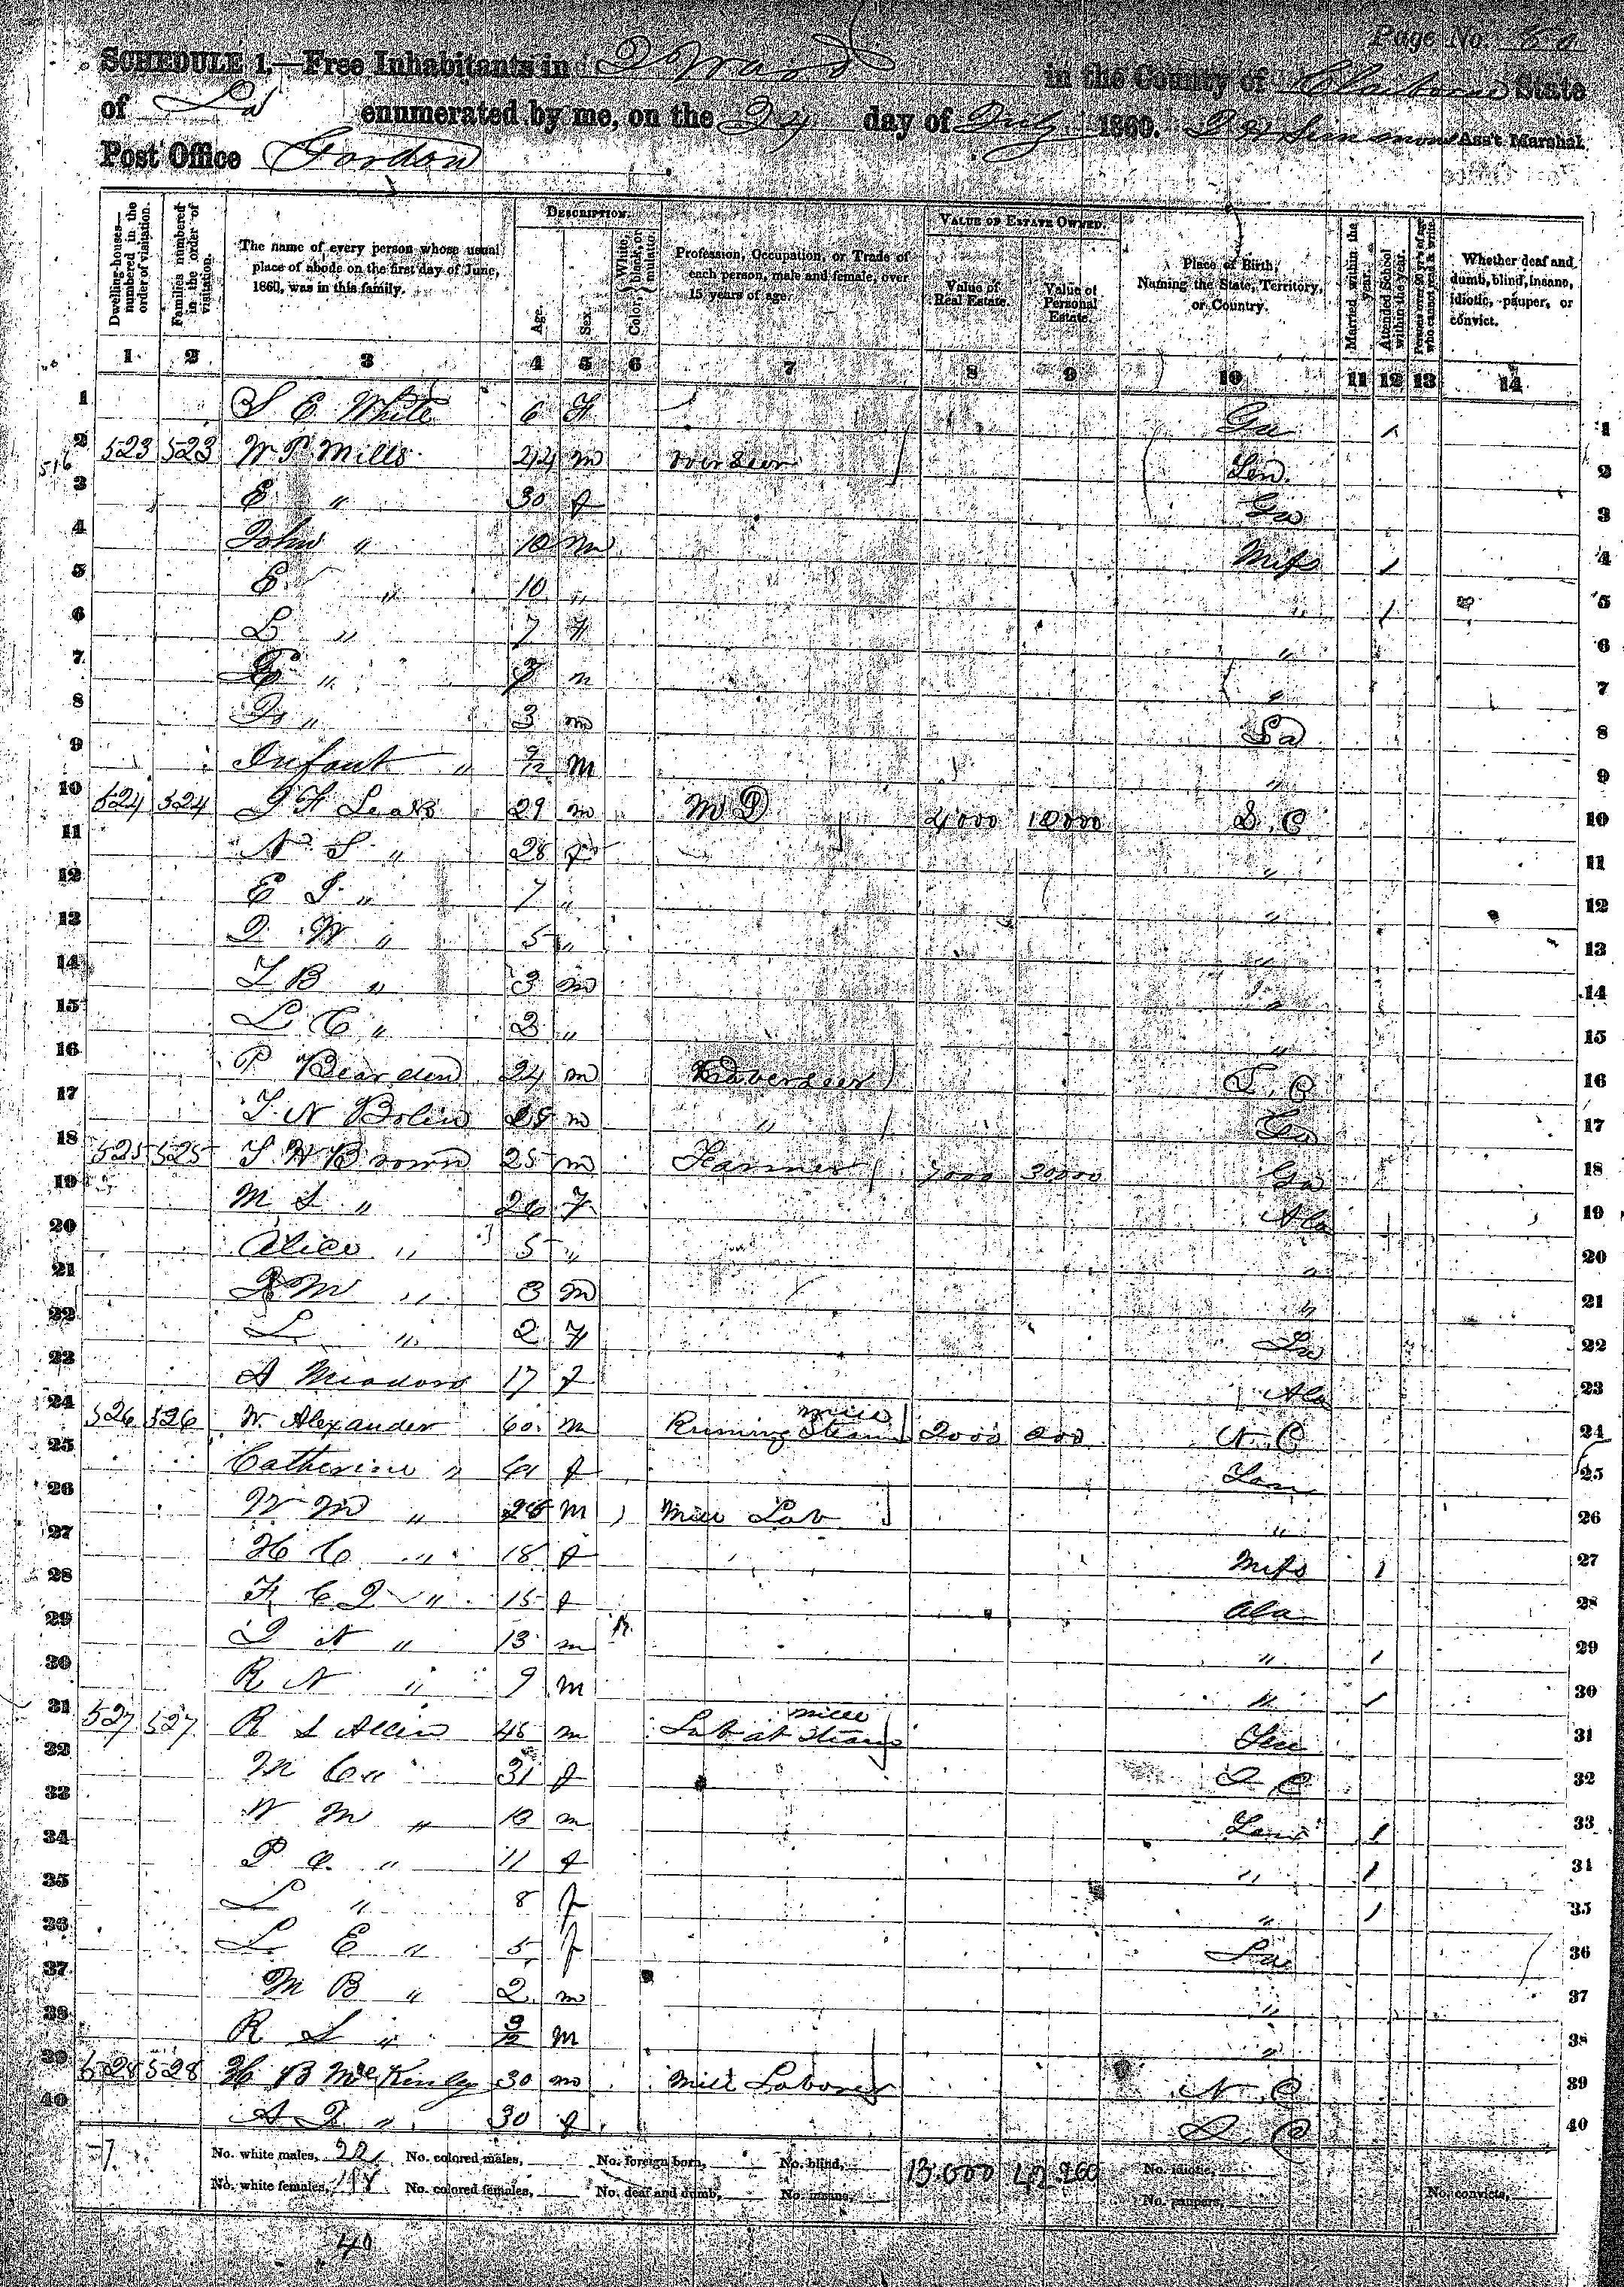 Page No. 60
SCHEDULE 1.—Free Inhabitants in 2 Ward in the County of Claiborne State
of La enumerated by me, on the 24 day of July 1860. Ass't Marshal.
Post Office Gordon
Dwelling-houses—numbered in the order of visitation.
Families numbered in the order of visitation.
The name of every person whose usual place of abode on the first day of June, 1860, was in this family.
DESCRIPTION.
Age.
Sex.
Color, White, black, or mulatto.
Profession, Occupation, or Trade of each person, male and female, over 15 years of age.
VALUE OF ESTATE OWNED.
Value of Real Estate.
Value of Personal Estate.
Place of Birth, Naming the State, Territory, or Country.
Married within the year.
Attended School within the year.
Persons over 20 y'rs of age who cannot read & write.
Whether deaf and dumb, blind, insane, idiotic, pauper, or convict.
1 2 3 4 5 6 7 8 9 10 11 12 13 14
1 S E White 6 F Ga / 1
2 523 523 W. P. Mills 44 m Ten 2
3 E " 30 f Ga 3
4 John " 10 m Miss / 4
5 E " 10 " " / 5
6 L " 7 F " 6
7 " m " 7
8 " 3 m La 8
9 Infant " 9/12 M " 9
10 524 524 J F Leak 29 m M D 4000 10000 S. C 10
11 N S " 28 f " 11
12 E J " 7 " " 12
13 J W " 5 " " 13
14 T B " 3 m " 14
15 L C " 2 " " 15
16 P Bearden 24 m Overseer S. C 16
17 T. N Bolin m " 17
18 525 525 T H Brown 25 m Farmer 7000 30000 Ga 18
19 M S " 26 F Ala 19
20 Alice " 5 " " 20
21 M " 3 m " 21
22 L " 2 F La 22
23 A Meadows 17 f Ala 23
24 526 526 W. Alexander 60 m Runing Steam mill 2000 N. C 24
25 Catherine " f Ten 25
26 W M " m Mill Lab " 26
27 H C " 18 f Miss / 27
28 F C J " 15 f Ala 28
29 J N " 13 m " / 29
30 R N " 9 m " / 30
31 527 527 R S Allen 45 m Lab at Steam mill Ten 31
32 M C " 31 f S C 32
33 W M " m Ten / 33
34 P " 11 f " / 34
35 L " 8 f " / 35
36 L E " 5 f La 36
37 M B " 2 m " 37
38 R S " 9/12 m " 38
39 528 528 H B McKinly 30 m Mill Laborer N. C 39
40 A J " 30 f S. C 40
No. white males, 22 No. colored males, No. foreign born, No. blind, 13.000 No. idiotic,
No. white females, 18 No. colored females, No. deaf and dumb, No. insane, No. paupers, No. convicts,
40